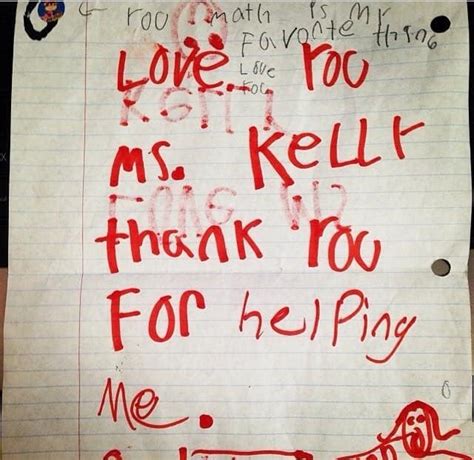 rou math is mr
Favorite thing
Love
rou
Love rou
Ms. Kellr
thank rou
For helping
Me.